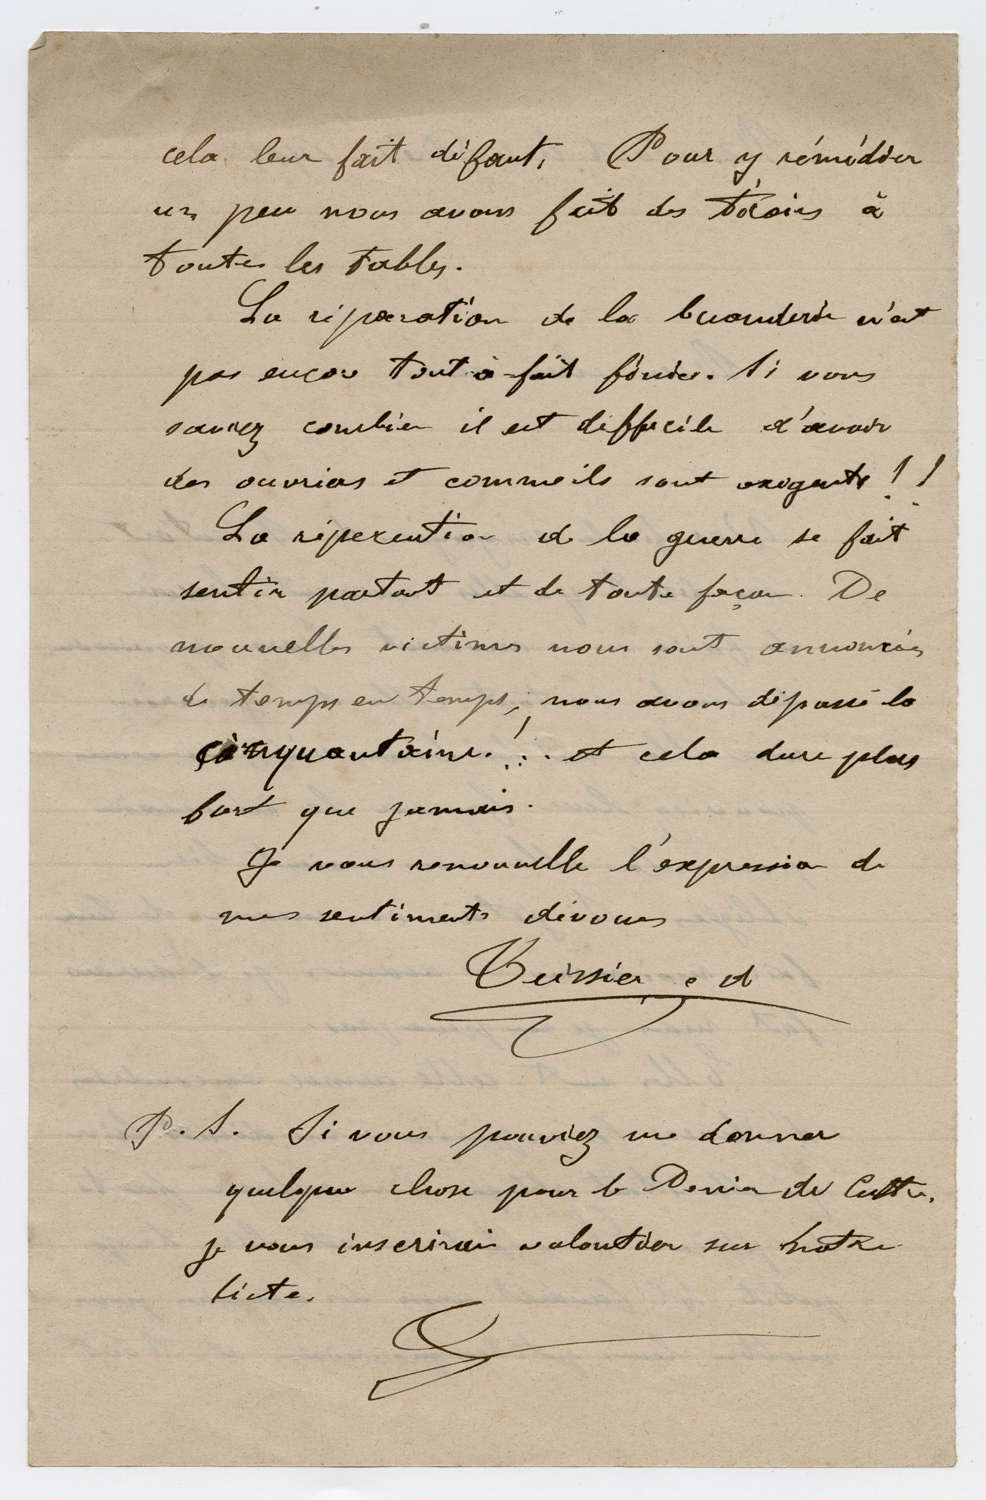 cela leur fait défaut. Pour y rémédier
un peu nous avons fait des tiroirs à
toutes les tables.
La réparation de la buanderie n'est
pas encore tout-à-fait finie. Si vous
saviez combien il est difficile d'avoir
des ouvriers et comme ils sont exigents!!
La répercution de la guerre se fait
sentir partout et de toute façon. De
nouvelles victimes nous sont annoncées
de temps en temps; nous avons dépassé la
cinquantaine! . . . et cela dure plus
fort que jamais.
Je vous renouvelle l'expression de
mes sentiments dévoués
P.S. Si vous pouviez me donner
quelque chose pour le Denier du Culte,
je vous inscrirais volontier sur notre
liste.